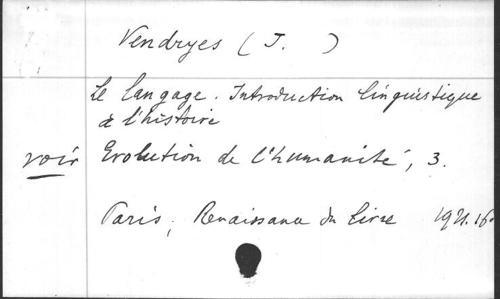 Vendryes ( J. )
Le langage. Introduction linguistique
à l'histoire
voir Evolution de l'humanité, 3.
Paris, Renaissance du Livre 1921. 16°